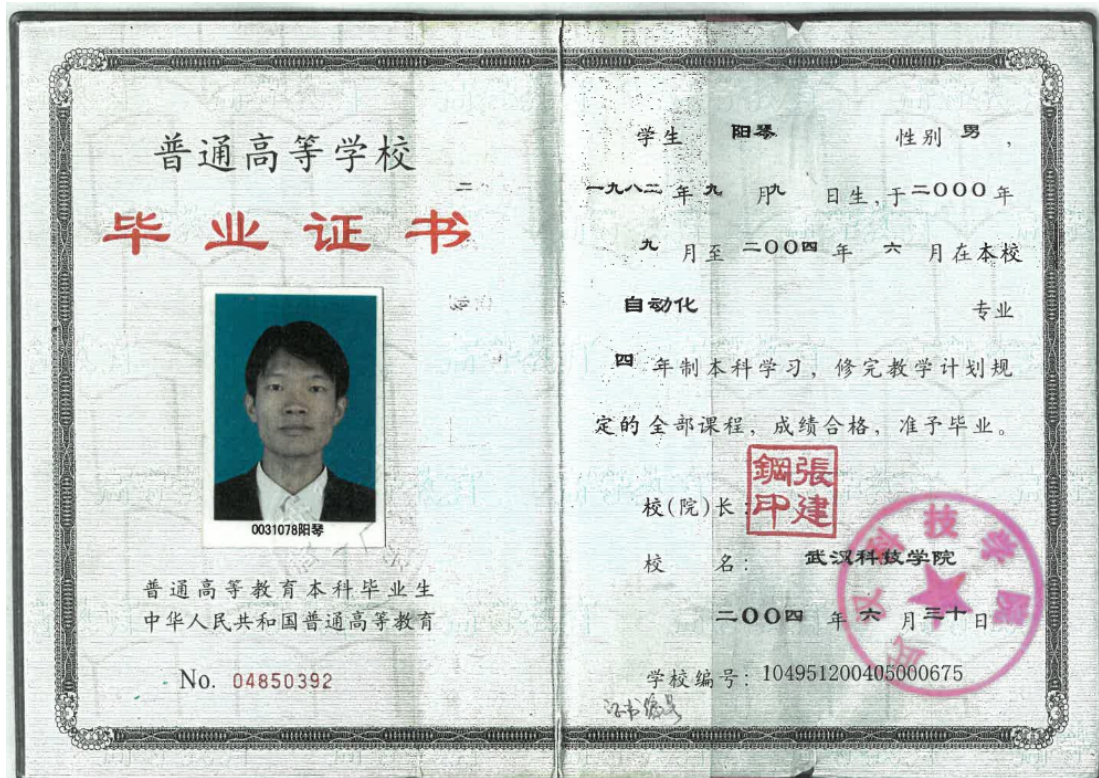 普通高等学校
毕业证书
0031078阳琴
普通高等教育本科毕业生
中华人民共和国普通高等教育
No. 04850392
学生 阳琴 性别 男，
一九八二年九月九日生，于二000年
九月至二00四年六月在本校
自动化 专业
四年制本科学习，修完教学计划规
定的全部课程，成绩合格，准予毕业。
校(院)长：
張建鋼印
校 名： 武汉科技学院
武汉科技学院
二00四年六月三十日
学校编号：104951200405000675
证书编号